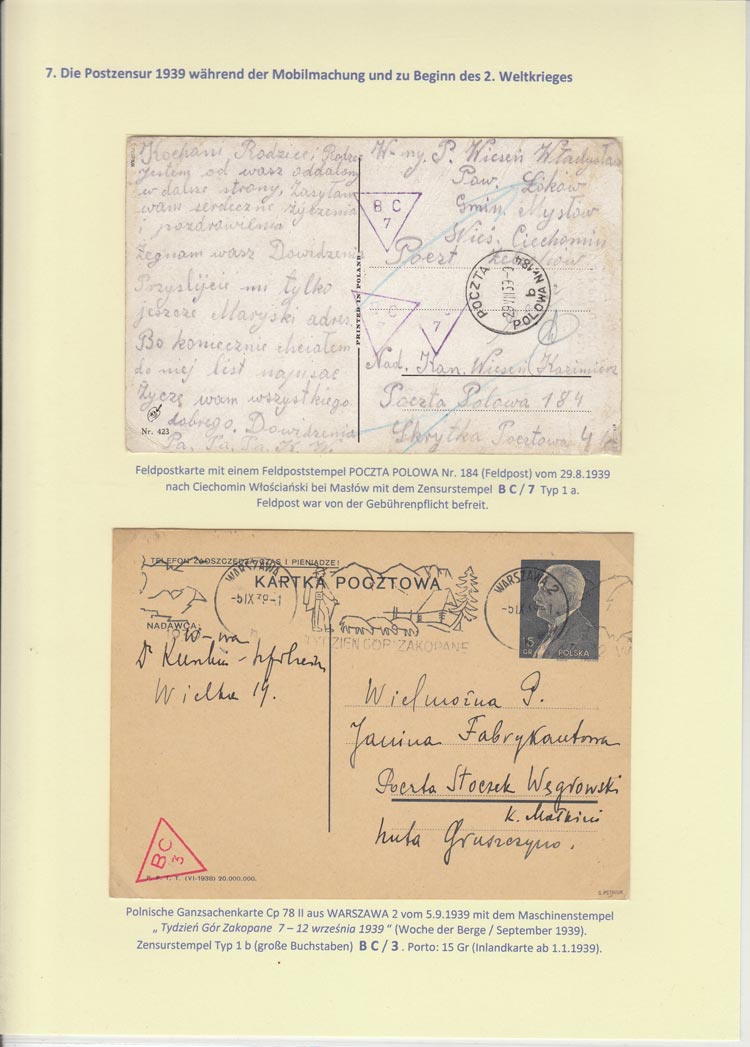 7. Die Postzensur 1939 während der Mobilmachung und zu Beginn des 2. Weltkrieges
Kochani Rodzice i Rodze
Jestem od wasz oddalony
w dalsze strony, Zasyłam
wam serdeczne życzenia
i pozdrowilnia
Żegnam wasz Dowidzenia
Przyslijcie mi tylko
jeszcze Maryski adres
Bo koniecznie chciałem
do niej list napisac
Życzę wam wszystkiego
dobrego. Dowidzenia
Pa. Pa. Pa. K. W.
Nr. 423
PRINTED IN POLAND
W-ny. P. Wieseń Władysław
Pow. Łóków
Gmin. Mysłów
Wieś. Ciechomin
Poczt
B C
7
B C
7
7
POCZTA POLOWA Nr. 184
29 VIII 39-9
b
Nad. Kan. Wieseń Kazimierz
Poczta Polowa 184
Skrytka Pocztowa 4
Feldpostkarte mit einem Feldpoststempel POCZTA POLOWA Nr. 184 (Feldpost) vom 29.8.1939
nach Ciechomin Włościański bei Masłów mit dem Zensurstempel B C / 7 Typ 1 a.
Feldpost war von der Gebührenpflicht befreit.
TELEFON ZAOSZCZĘDZA CZAS I PIENIĄDZE!
KARTKA POCZTOWA
WARSZAWA 2
-5IX 39-1
WARSZAWA 2
-5IX 39-1
TYDZIEŃ GÓR ZAKOPANE
NADAWCA:
W-wa
Dr
Wielka 19.
15
GR
POLSKA
Wielmożna P.
Janina Fabrykantowa
Poczta Stoczek Węgrowski
k. Małkini
huta Gruszczyno.
BC
3
P. P. T. T. (VI-1938) 20.000.000.
Polnische Ganzsachenkarte Cp 78 II aus WARSZAWA 2 vom 5.9.1939 mit dem Maschinenstempel
„ Tydzień Gór Zakopane 7 – 12 września 1939 “ (Woche der Berge / September 1939).
Zensurstempel Typ 1 b (große Buchstaben) B C / 3 . Porto: 15 Gr (Inlandkarte ab 1.1.1939).